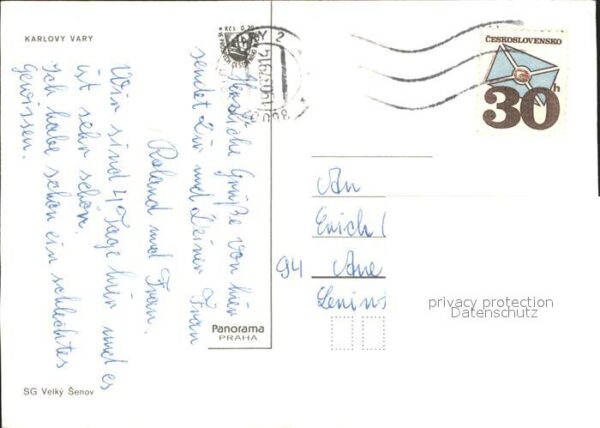 KARLOVY VARY
Herzliche Grüße von hier
sendet Dir und Deiner Frau
Roland und Frau.
Wir sind 4 Tage hier und es
ist sehr schön.
Ich habe schon ein schlechtes
Gewissen.
SG Velký Šenov
Panorama
PRAHA
ČESKOSLOVENSKO
30h
An
Erich
94 Aue
Lenins
privacy protection
Datenschutz